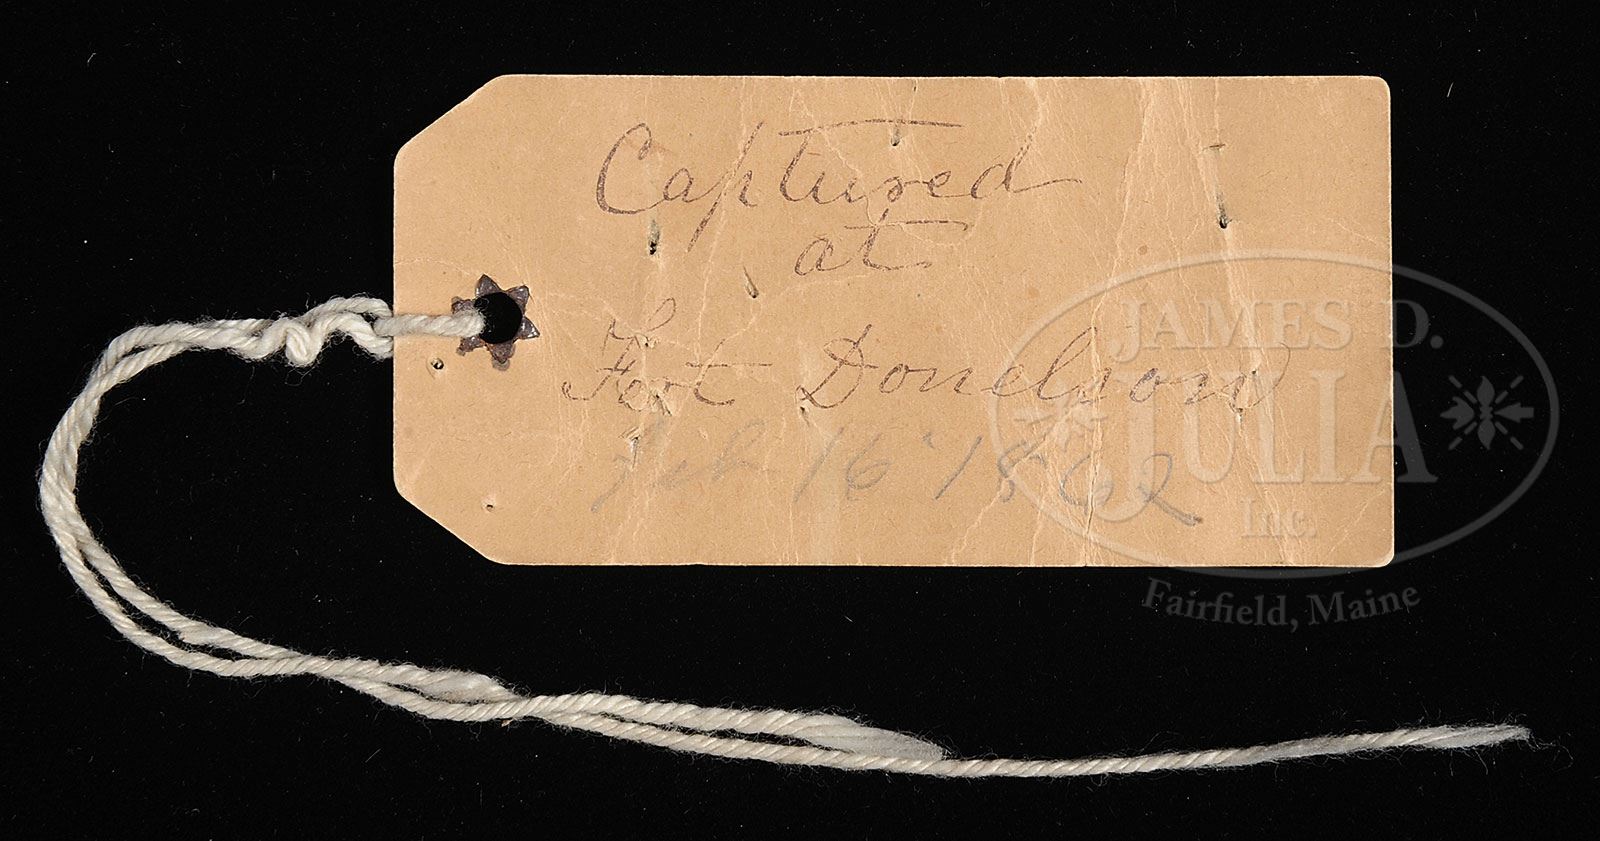 Captured
at
Fort Donelson
Feb 16 1862
JAMES D.
JULIA
Inc.
Fairfield, Maine